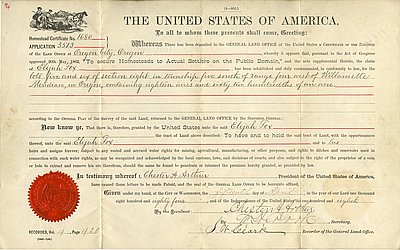 (4—402.)
THE UNITED STATES OF AMERICA.
To all to whom these presents shall come, Greeting:
Homestead Certificate No. 1680
APPLICATION 3513
Whereas There has been deposited in the GENERAL LAND OFFICE of the United States a CERTIFICATE OF THE REGISTER
OF THE LAND OFFICE AT Oregon City, Oregon, whereby it appears that, pursuant to the Act of Congress
approved 20th May, 1862, "To secure Homesteads to Actual Settlers on the Public Domain," and the acts supplemental thereto, the claim
of Elijah Fox has been established and duly consummated, in conformity to law, for the
lots five and six of section eight in township five south of range four west of Willamette
Meridian, in Oregon, containing eighteen acres and sixty two hundredths of an acre.
according to the OFFICIAL PLAT of the Survey of the said Land, returned to the GENERAL LAND OFFICE by the SURVEYOR GENERAL:
Now know ye, That there is, therefore, granted by the United States unto the said Elijah Fox
the tract of Land above described: To have and to hold the said tract of Land, with the appurtenances
thereof, unto the said Elijah Fox and to his
heirs and assigns forever; subject to any vested and accrued water rights for mining, agricultural, manufacturing, or other purposes, and rights to ditches and reservoirs used in
connection with such water rights, as may be recognized and acknowledged by the local customs, laws, and decisions of courts, and also subject to the right of the proprietor of a vein
or lode to extract and remove his ore therefrom, should the same be found to penetrate or intersect the premises hereby granted, as provided by law.
In testimony whereof I, Chester A. Arthur, President of the United States of America,
have caused these letters to be made Patent, and the seal of the General Land Office to be hereunto affixed.
Given under my hand, at the CITY OF WASHINGTON, the day of, in the year of our Lord one thousand
eight hundred and eighty four, and of the Independence of the United States the one hundred and eighth
By the President: Chester A. Arthur
By Secretary.
S. W. Clark
RECORDED, Vol. Page